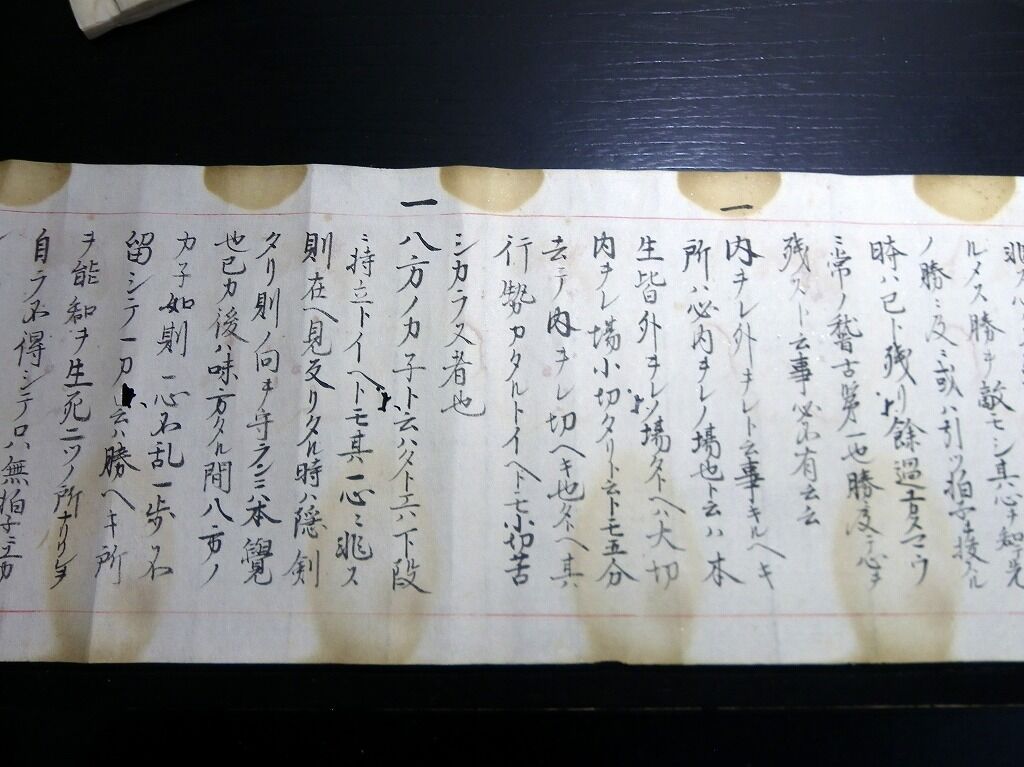 ルメス勝ヲ敵モシ其心ヲ知テ先
ノ勝ミ及ミ或ハ引ツ拍子ヲ授ル
時ハ已ト残リ餘過
ミ常ノ稽古第一也勝 テ心ヲ
残スト云事必不有云云
一
内ヲレ外ヲレト云事ヲキルヘキ
所ハ必内ヲレノ場也ト云ハ本
生皆外ヲレソ場タトヘハ大切
内ヲレ場小切タリト云トモ五分
去テ内ヲレ切ヘキ也タトヘ其
行勢カタルトイヘトモ小切苦
シカラス者也
一
八方ノカ子ト云ハタトエハ下段
ミ持立トイヘトモ其一心ミ非ス
則在ヘ見反リタル時ハ隠剣
タリ則ノ向ヲ守ラン三本覺
也已カ後ハ味方タル間八方ノ
カ子如則一心不乱一歩不
留シテ一刀 云ハ勝ヘキ所
ヲ能知ヲ生死二ツノ所ナリ
自ラ不得シテロハ無拍子立カ